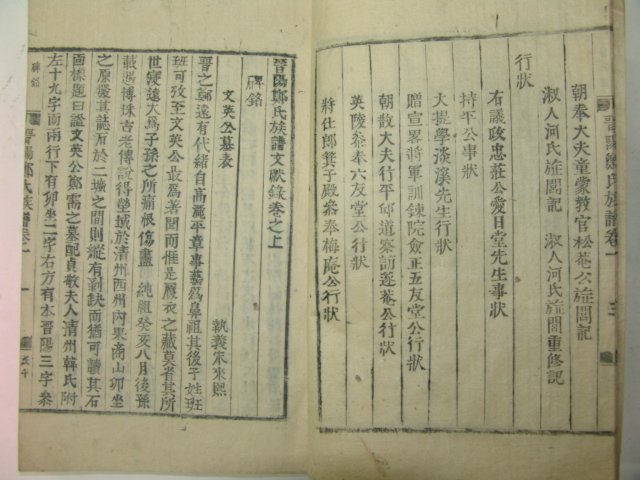 晉陽鄭氏族譜卷一 三
朝奉大夫童蒙敎官松菴公旌閭記
淑人河氏旌閭記 淑人河氏旌閭重修記
行狀
右議政忠莊公愛日堂先生事狀
持平公事狀
大提學淡溪先生行狀
贈宣畧將軍訓鍊院僉正五友堂公行狀
朝散大夫行平邱道察訪蓬菴公行狀
英陵參奉六友堂公行狀
將仕郞箕子殿參奉梅庵公行狀
晉陽鄭氏族譜文獻錄卷之上
碑銘
文英公墓表 執義宋來熙
晉之鄭遠有代緖自高麗平章事藝爲鼻祖其後子姓班
班可攷至文英公最爲著聞而惟是厥衣之藏莫省其所
世寖遠大爲子孫之所痛恨傷盡 純祖癸亥八月後孫
載遇博採古老傳說得塋域於淸州西州內東商山卯坐
之原癹其誌石於二壙之間則縱有剝缺而猶可讀其石
面標題曰諡文英公鄭需之墓配貞敬夫人淸州韓氏附
左十九字而兩行下有卯坐二字右方有本晉陽三字叅
碑銘 晉陽鄭氏族譜卷一